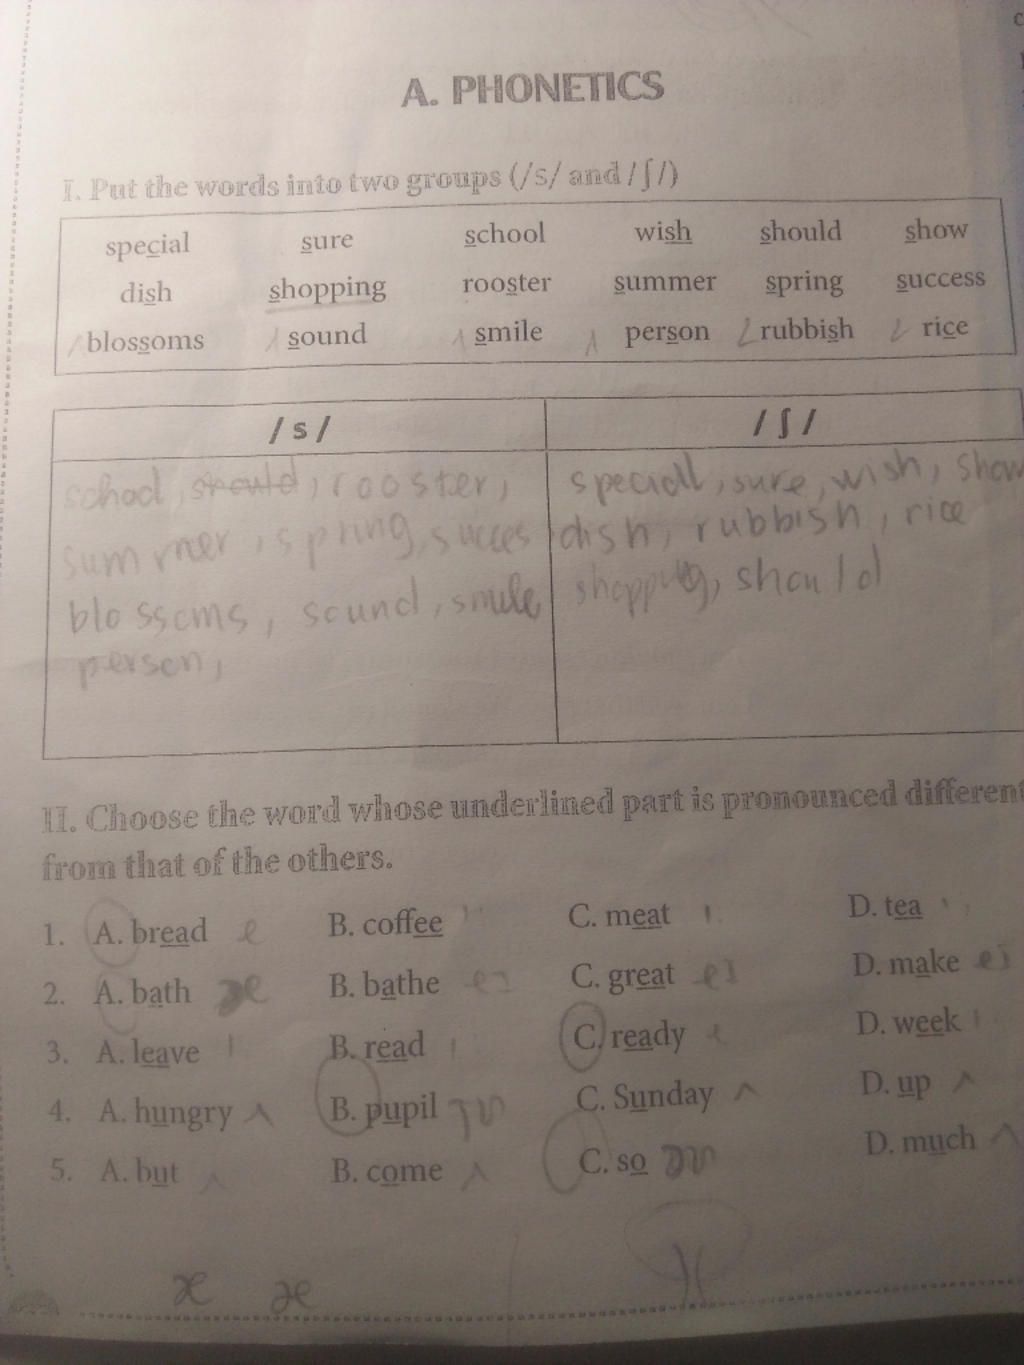 A. PHONETICS
I. Put the words into two groups (/s/ and /ʃ/)
special sure school wish should show
dish shopping rooster summer spring success
blossoms sound smile person rubbish rice
/s/ /ʃ/
school, should, rooster, speciall, sure, wish, show
summer, spring, succes dish, rubbish, rice
blossoms, sound, smile shopping, should
person,
II. Choose the word whose underlined part is pronounced different
from that of the others.
1. A. bread e B. coffee i: C. meat i D. tea i
2. A. bath æ B. bathe ei C. great ei D. make ei
3. A. leave i B. read i C. ready e D. week i
4. A. hungry ʌ B. pupil C. Sunday ʌ D. up ʌ
5. A. but ʌ B. come ʌ C. so əʊ D. much ʌ
æ æ